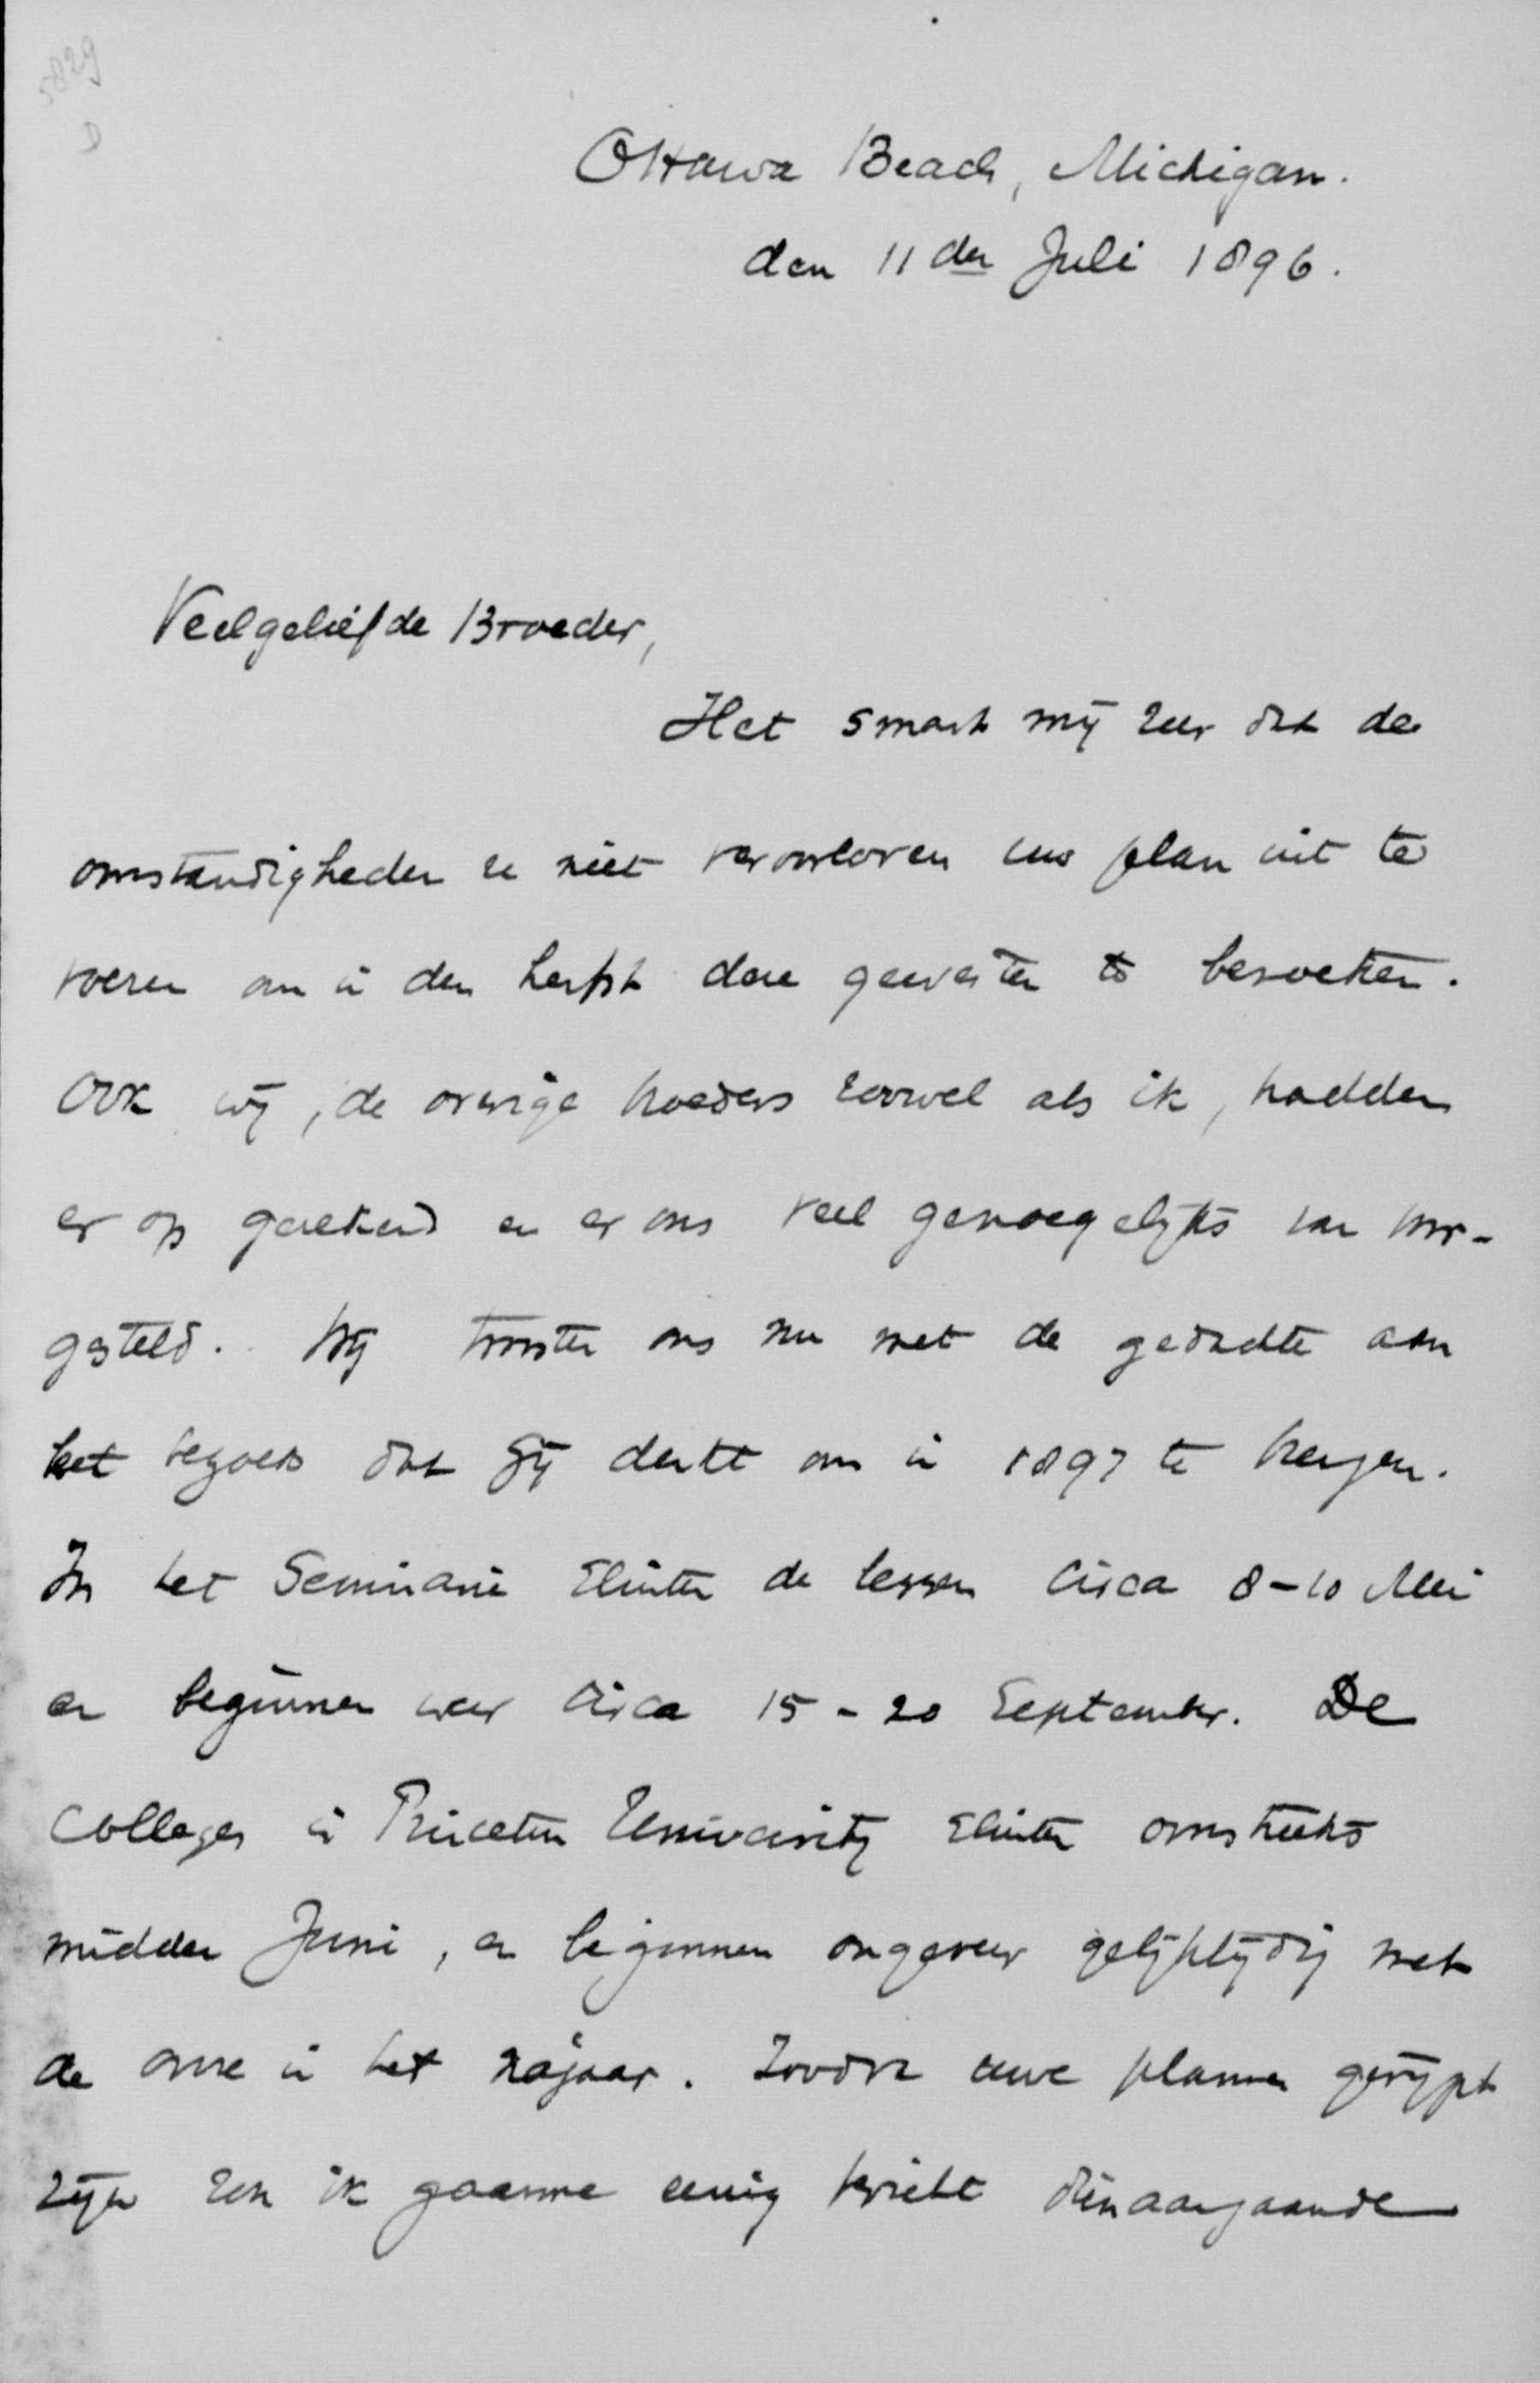 5829
D
Ottawa Beach, Michigan.
den 11den Juli 1896.
Veelgeliefde Broeder,
Het smart mij zeer dat de
omstandigheden u niet veroorloven uw plan uit te
voeren om in den herfst deze gewesten te bezoeken.
Ook wij, de overige broeders zoowel als ik, hadden
er op gerekend en er ons veel genoegelijks van voor-
gesteld. Wij troosten ons nu met de gedachte aan
het bezoek dat Gij denkt ons in 1897 te brengen.
In het Seminarie sluiten de lessen circa 8-10 Mei
en beginnen weer circa 15-20 September. De
Colleges in Princeton University sluiten omstreeks
midden Juni, en beginnen ongeveer gelijktijdig met
de onze in het najaar. Zoodra uwe plannen gerijpt
zijn zou ik gaarne eenig bericht dienaangaande